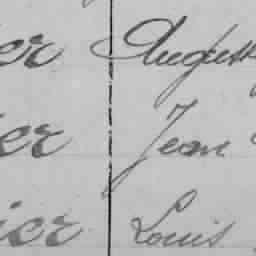 er Auguste
er Jean
ier Louis